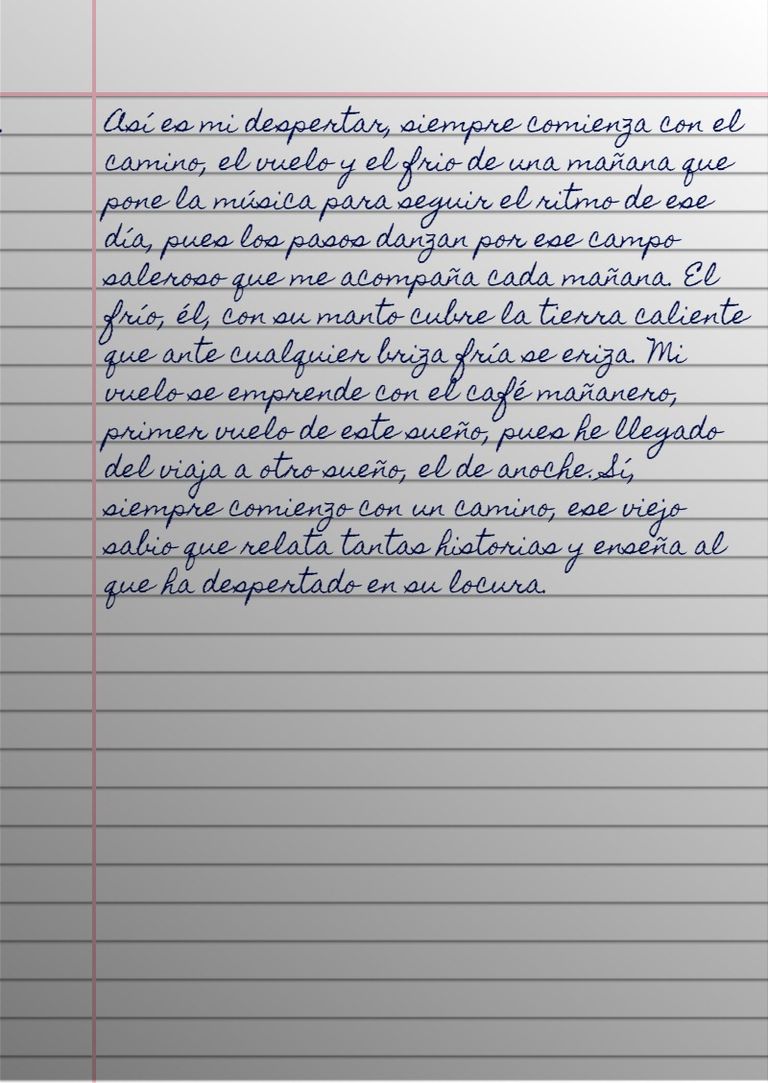 Así es mi despertar, siempre comienza con el
camino, el vuelo y el frio de una mañana que
pone la música para seguir el ritmo de ese
día, pues los pasos danzan por ese campo
saleroso que me acompaña cada mañana. El
frío, él, con su manto cubre la tierra caliente
que ante cualquier briza fría se eriza. Mi
vuelo se emprende con el café mañanero,
primer vuelo de este sueño, pues he llegado
del viaja a otro sueño, el de anoche. Sí,
siempre comienzo con un camino, ese viejo
sabio que relata tantas historias y enseña al
que ha despertado en su locura.